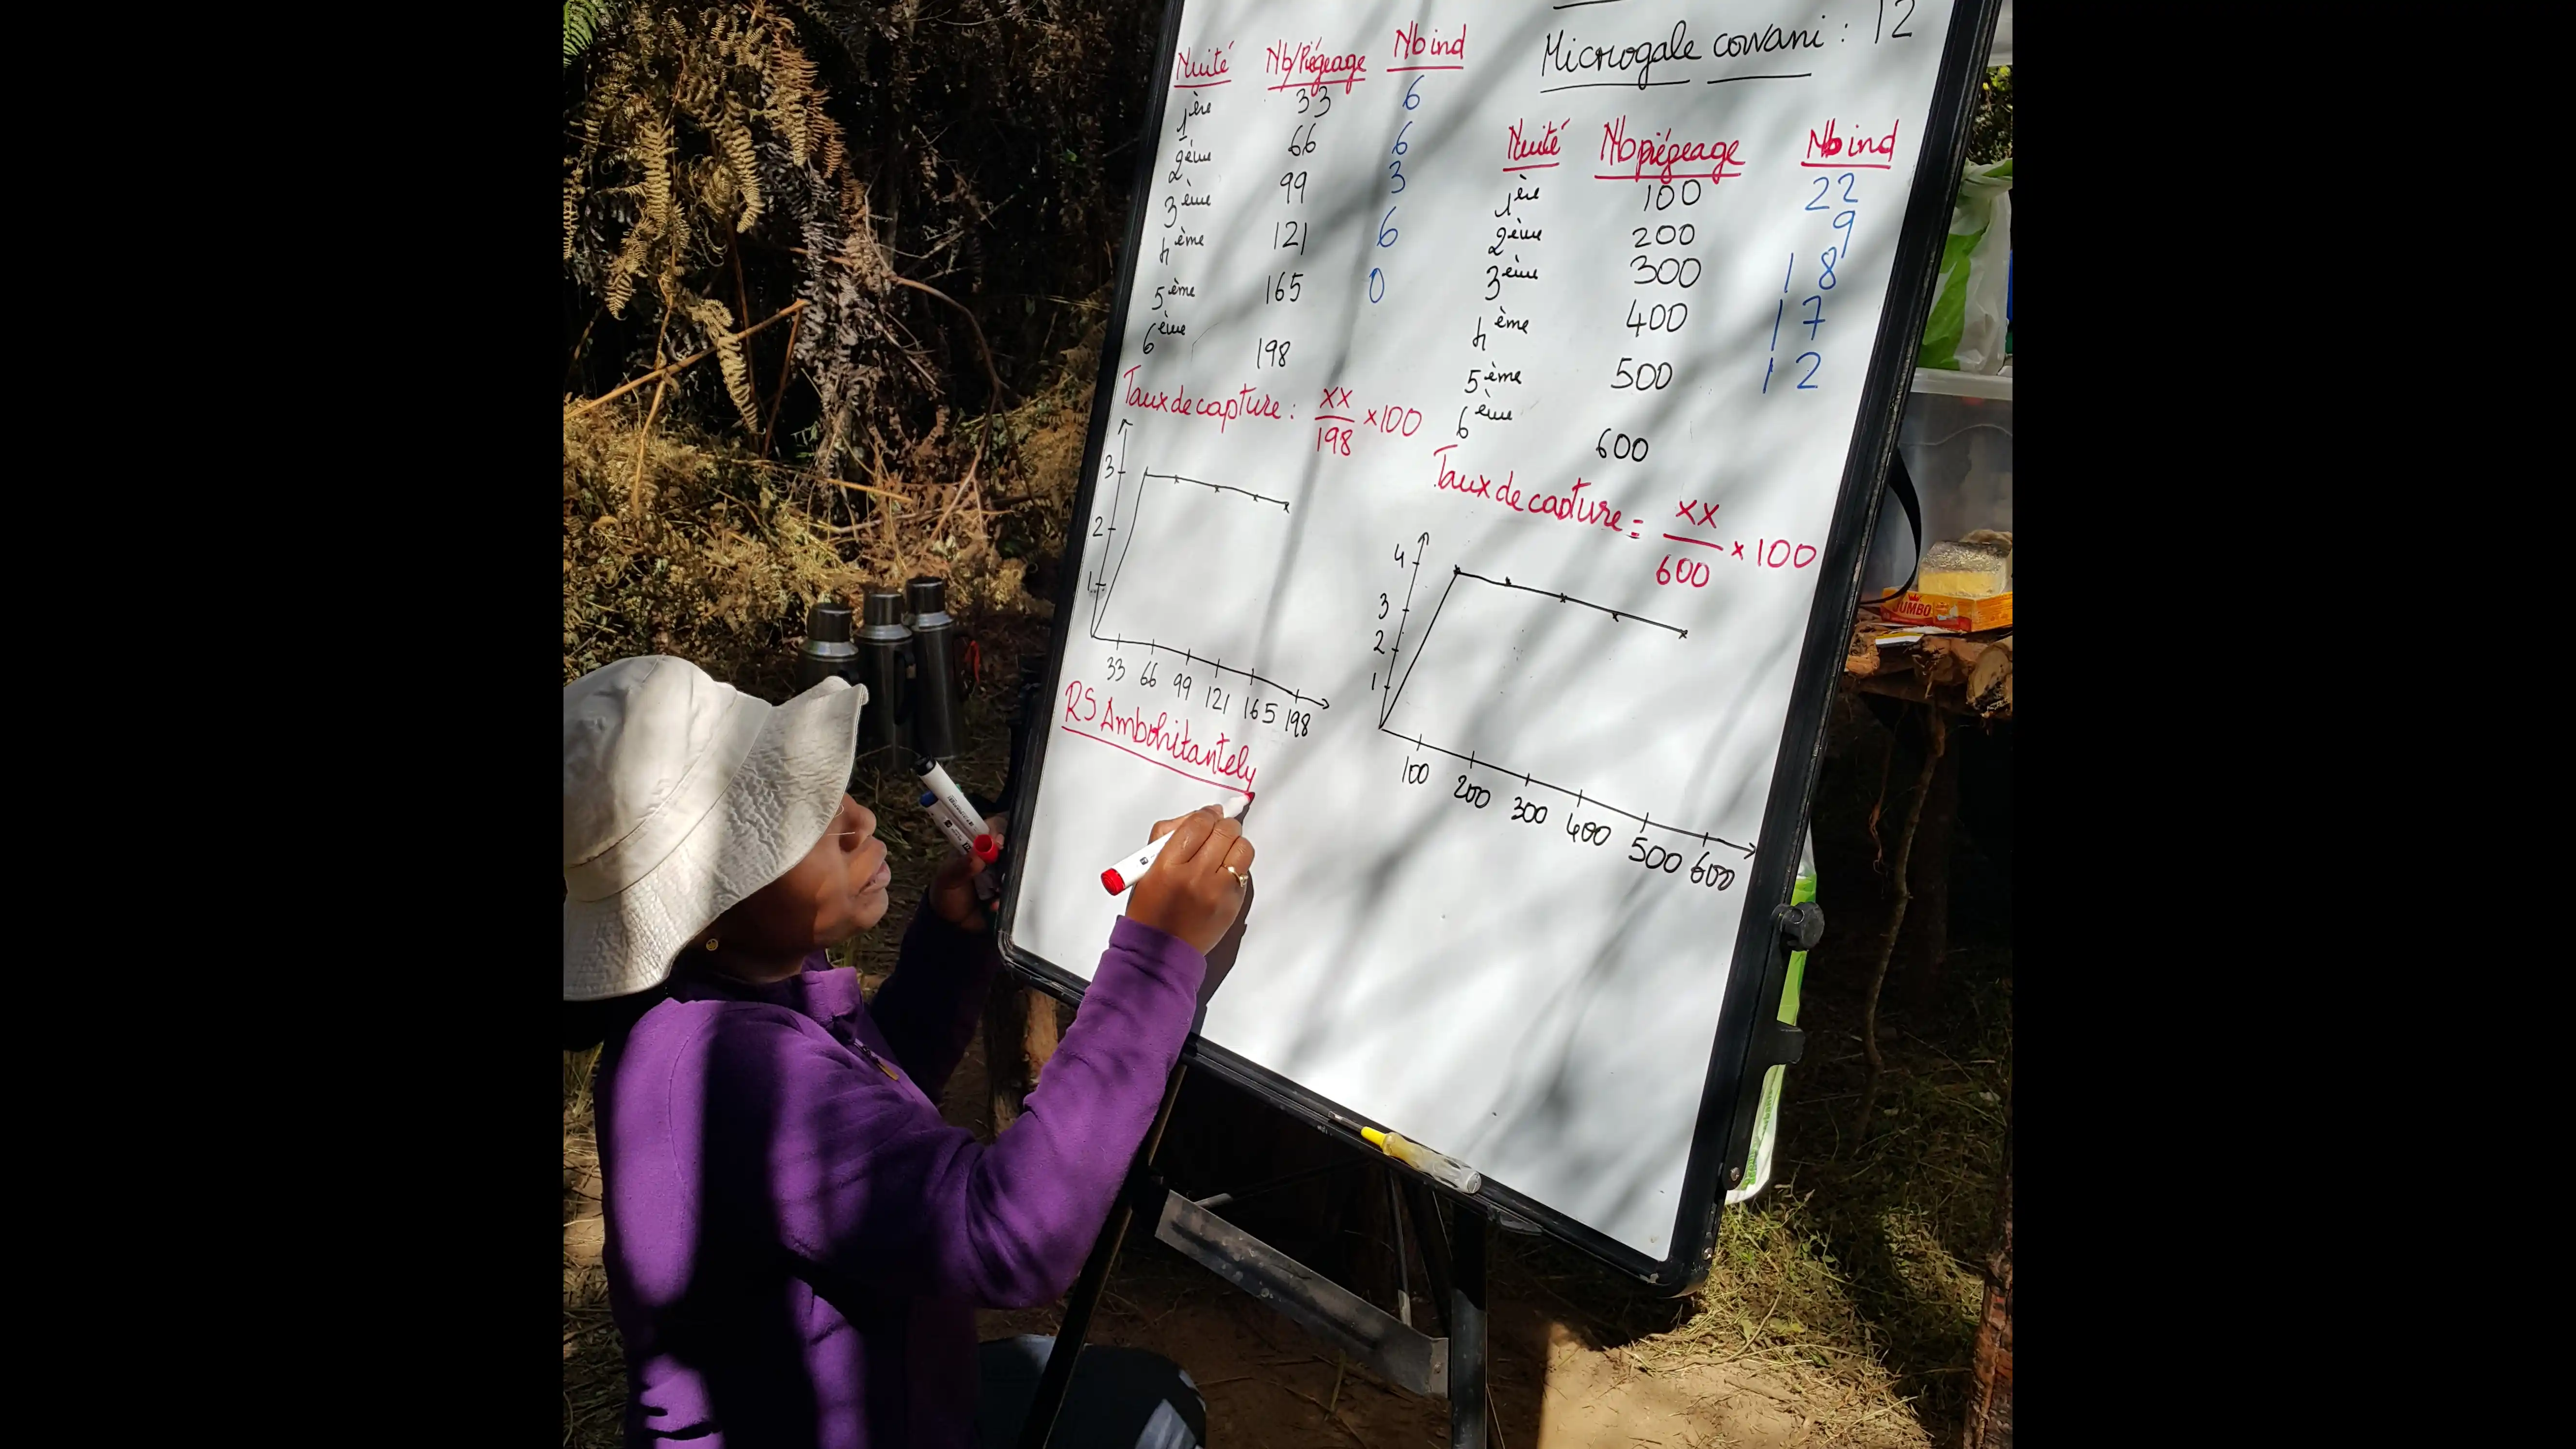 Nuité Nb/Piégeage Nb ind
1ère 33 6
2ème 66 6
3ème 99 3
4ème 121 6
5ème 165 0
6ème 198
Taux de capture : xx/198 x100
3
2
1
33 66 99 121 165 198
RS Ambohitantely
Microgale cowani : 12
Nuité Nb piégeage Nb ind
1ère 100 22
2ème 200 9
3ème 300 18
4ème 400 17
5ème 500 12
6ème 600
Taux de capture = xx/600 x 100
4
3
2
1
100 200 300 400 500 600
JUMBO